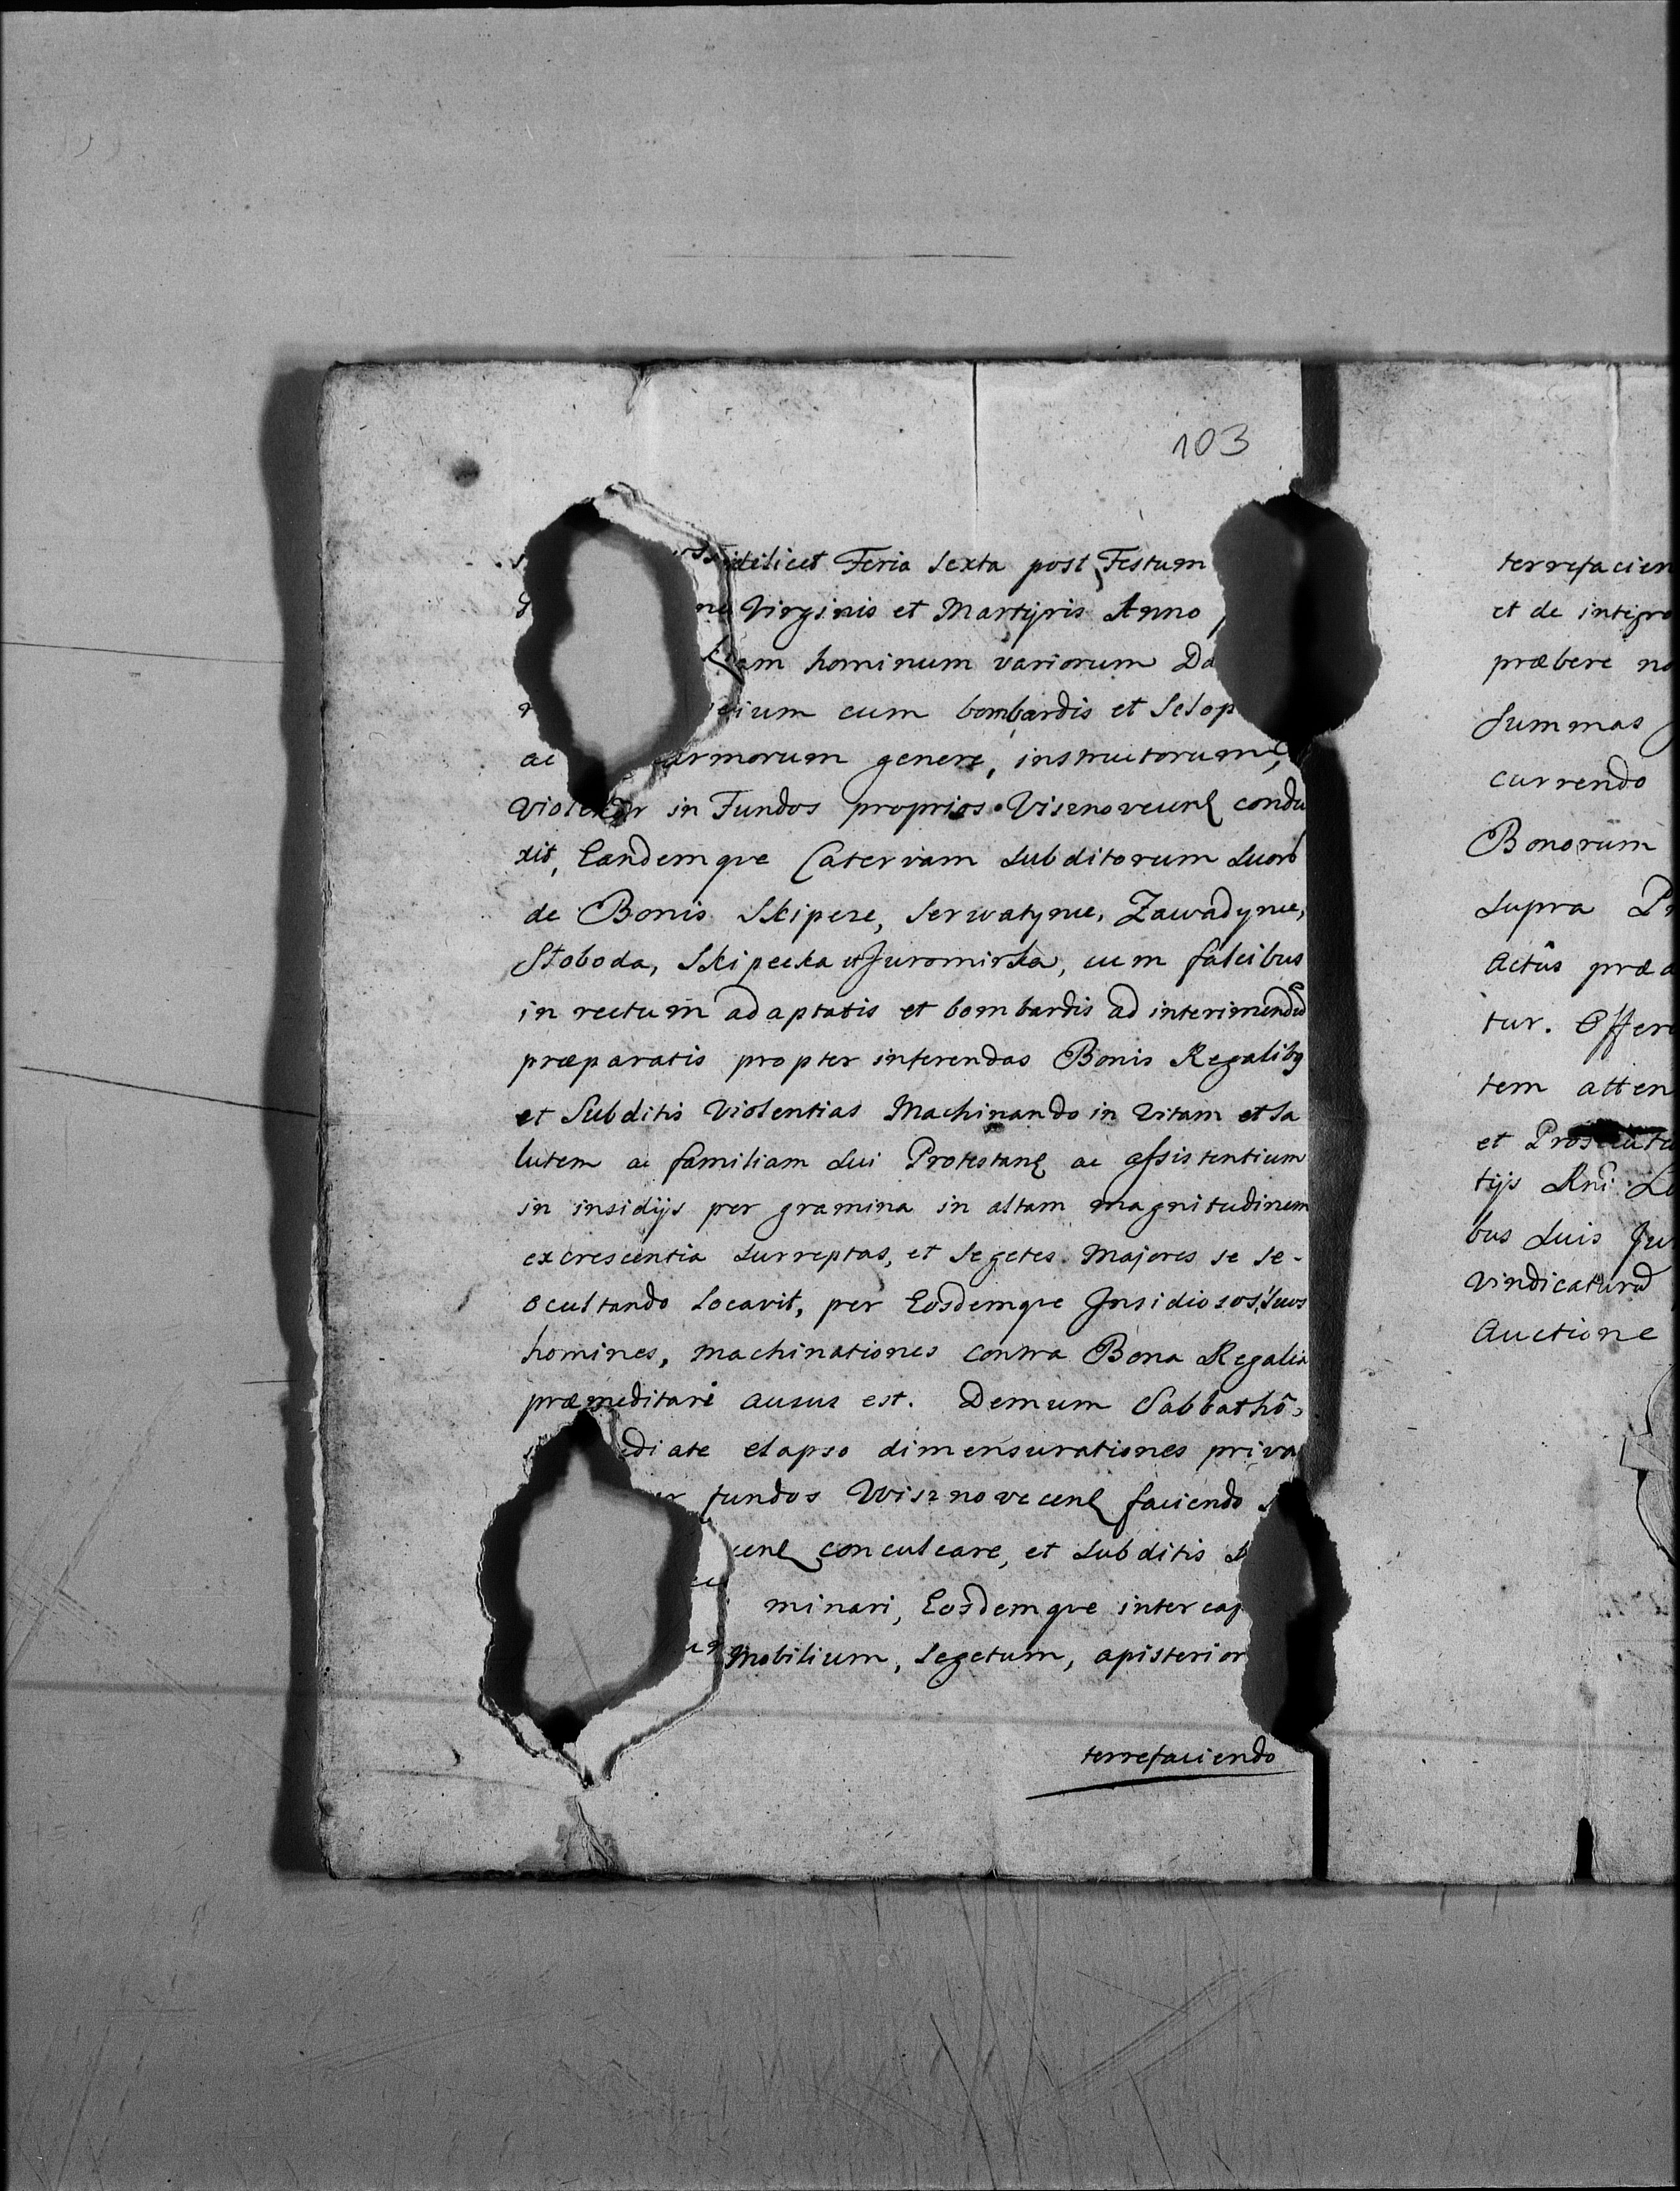 103
Feria Sexta post Festum
Virginis et Martyris Anno
hominum variorum
cum bombardis et Sclop
ac armorum genere, instructorum,
in Fundos proprios Visznoveceñ condu
xit, Eandemque Catervam Subditorum Suorũ
de Bonis Skipcze, Serwatynce, Zawadynce,
Słoboda, Skipecka et Juromirka, cum falcibus
in rectum adaptatis et bombardis ad interimendũ
præparatis propter inferendas Bonis Regalibq
et Subditis Violentias Machinando in Vitam et Sa
lutem ac familiam Sui Protestanẽ ac assistentium
in insidijs per gramina in altam magnitudinem
excrescentia surreptas, et Segetes Majores se se-
ocultando Locavit, per Eosdemque Insidiosos Suos
homines, machinationes contra Bona Regalia
præmeditari ausus est. Demum Sabbathô,
ediate elapso dimensurationes priva
fundos Wisznoveceñ faciendo
conculcare, et Subditis
minari, Eosdemque intercap
Mobilium, Segetum, apisterior
terrefaciendo
terrefacien
et de integro
præbere no
Summas
currendo
Bonorum
Supra
Actûs præa
tur. Offere
tem atten
et
tijs Rñi
bus Suis Ju
Vindicaturũ
Auctione